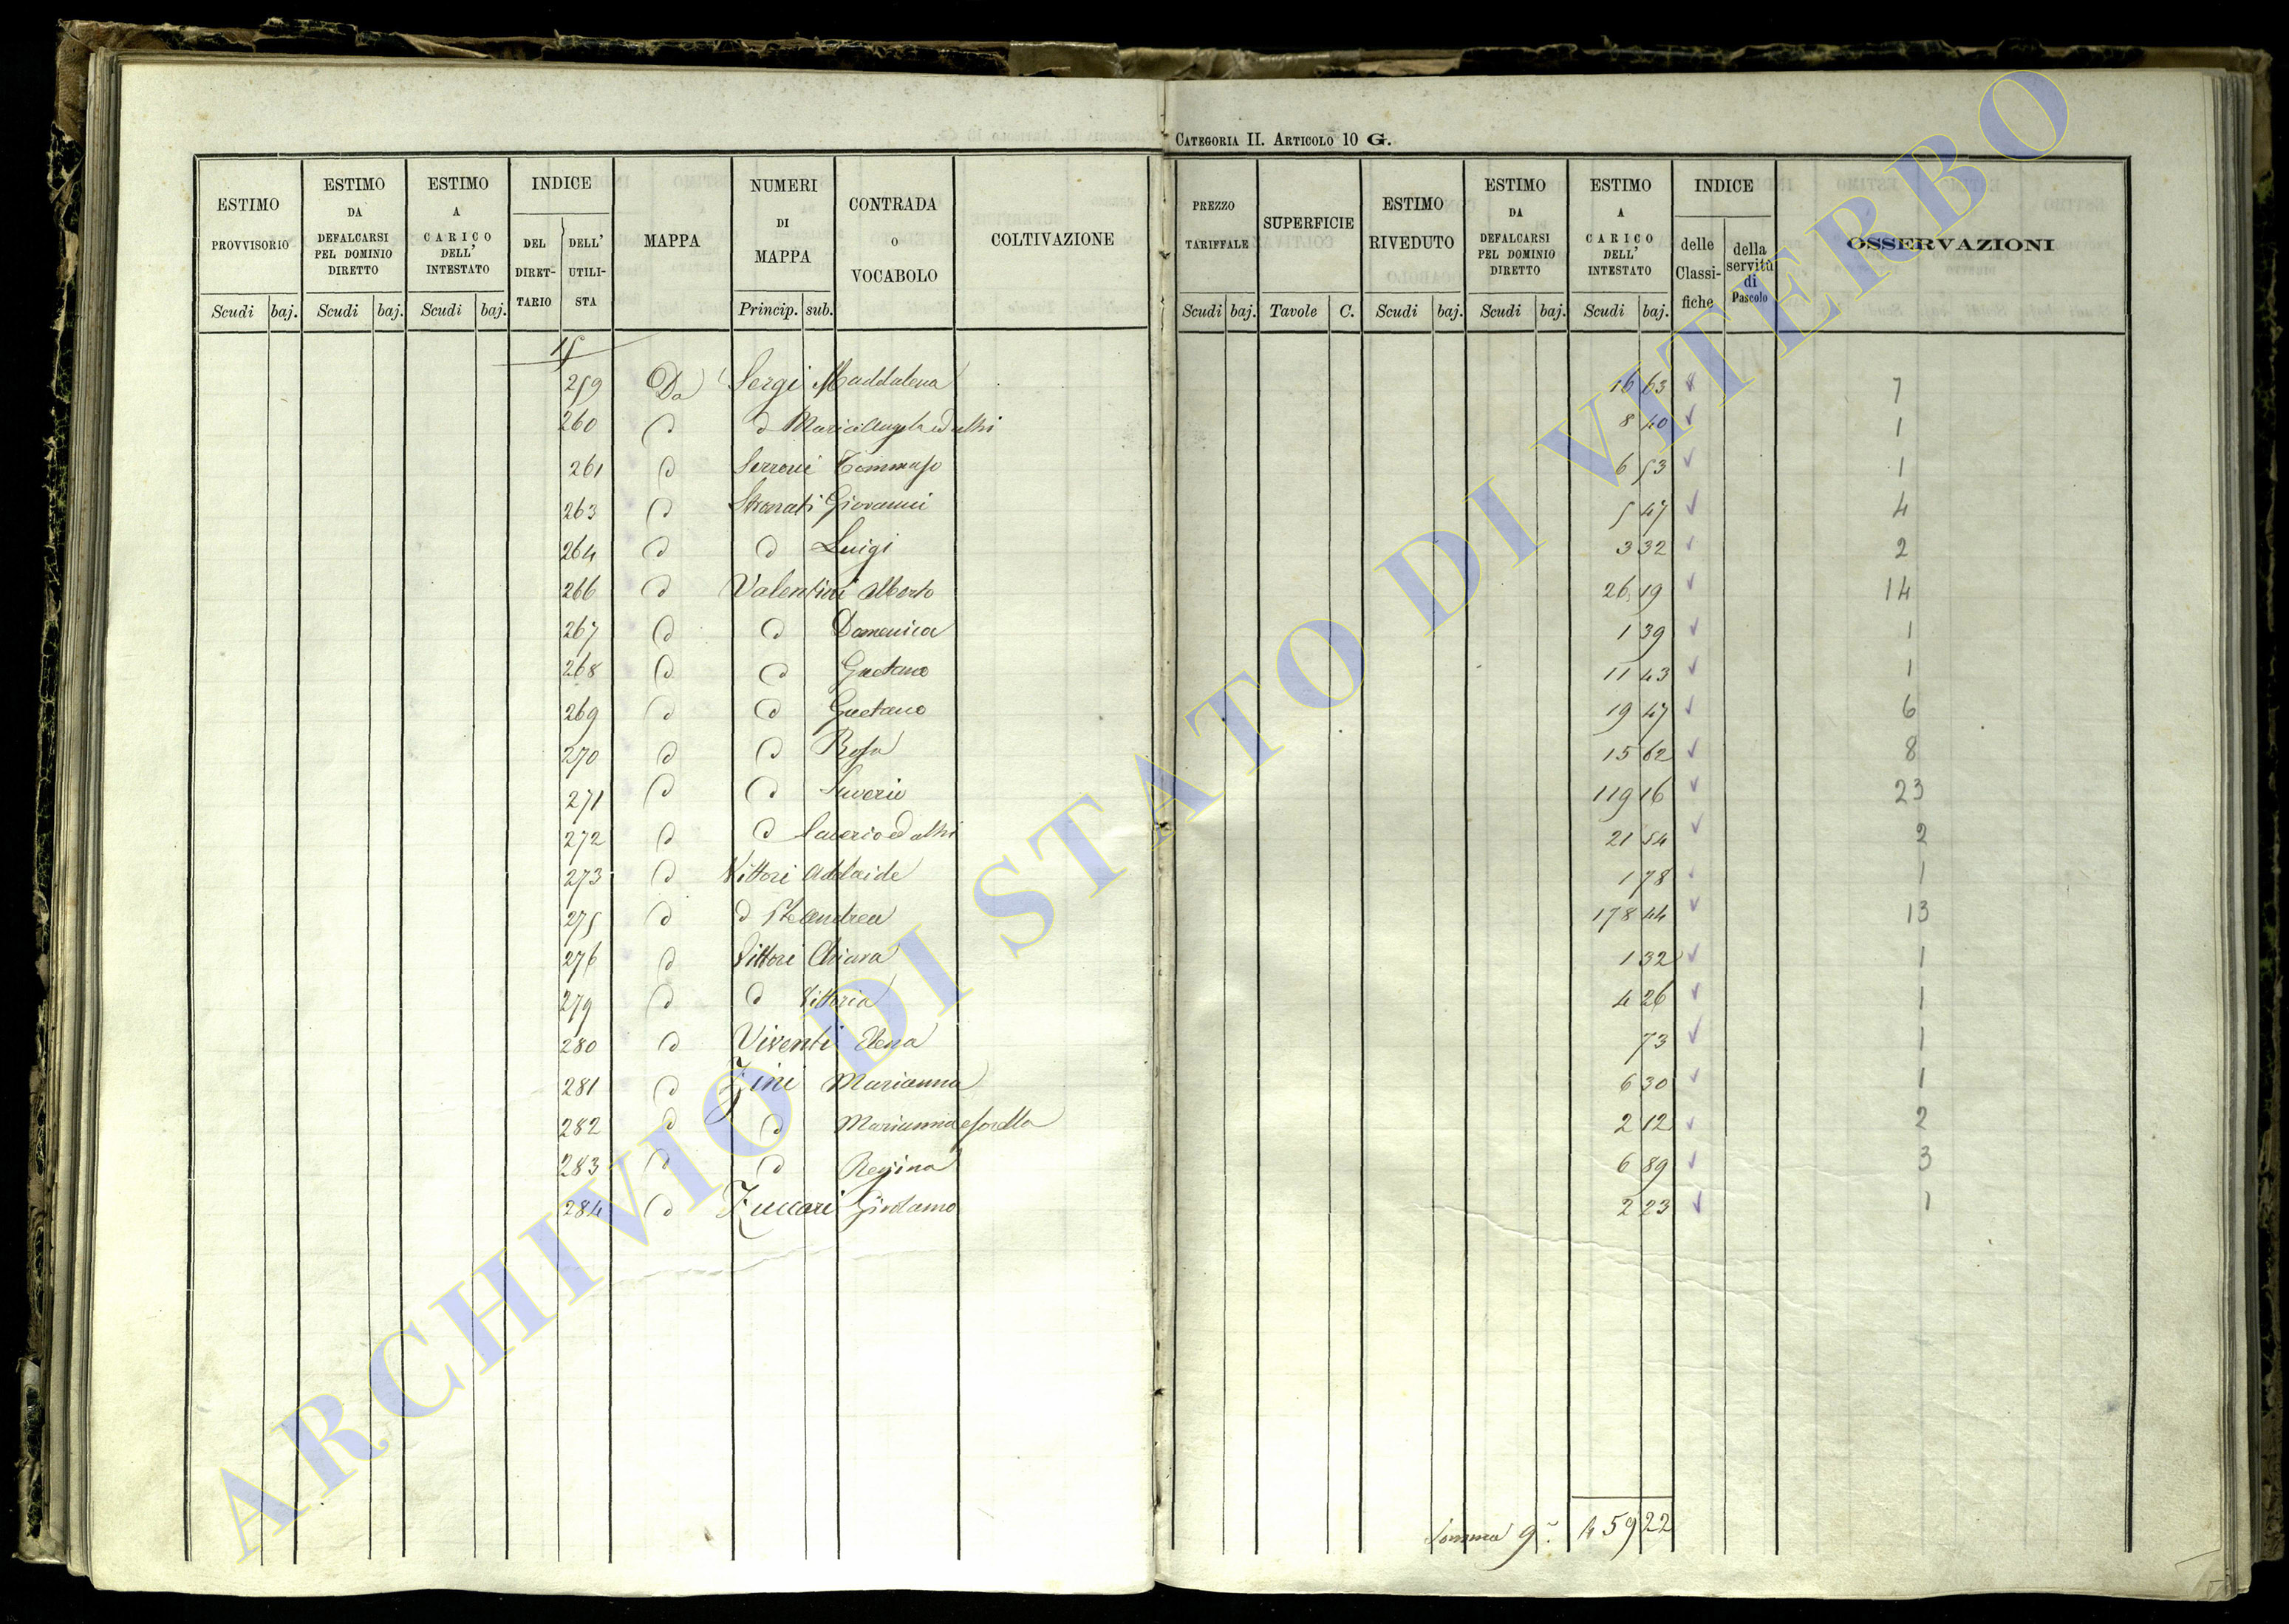 CATEGORIA II. ARTICOLO 10 G.
ESTIMO PROVVISORIO Scudi baj. | ESTIMO DA DEFALCARSI PEL DOMINIO DIRETTO Scudi baj. | ESTIMO A CARICO DELL' INTESTATO Scudi baj. | INDICE DEL DIRETTARIO DELL' UTILISTA | MAPPA | NUMERI DI MAPPA Princip. sub. | CONTRADA O VOCABOLO | COLTIVAZIONE | PREZZO TARIFFALE Scudi baj. | SUPERFICIE Tavole C. | ESTIMO RIVEDUTO Scudi baj. | ESTIMO DA DEFALCARSI PEL DOMINIO DIRETTO Scudi baj. | ESTIMO A CARICO DELL' INTESTATO Scudi baj. | INDICE delle Classifiche della servitù di Pascolo | OSSERVAZIONI
15
259 Da Sergi Maddalena 16 63 7
260 d d Mariangela ed altri 8 40 1
261 d Serroni Tommaso 6 53 1
263 d Stronati Giovanni 5 47 4
264 d d Luigi 3 32 2
266 d Valentini Alberto 26 19 14
267 d d Domenica 1 39 1
268 d d Gaetano 11 43 1
269 d d Gaetano 19 47 6
270 d d Rosa 15 62 8
271 d d Saverio 119 16 23
272 d d Saverio ed altri 21 54 2
273 d Vittori Adelaide 1 78 1
275 d d Andrea 178 44 13
276 d Vittori Chiara 1 32 1
279 d d Vittoria 4 26 1
280 d Viventi Elena 73 1
281 d Zini Marianna 6 30 1
282 d d Marianna e sorella 2 12 2
283 d d Regina 6 89 3
284 d Zuccari Girolamo 2 23 1
Somma 459 22
ARCHIVIO DI STATO DI VITERBO